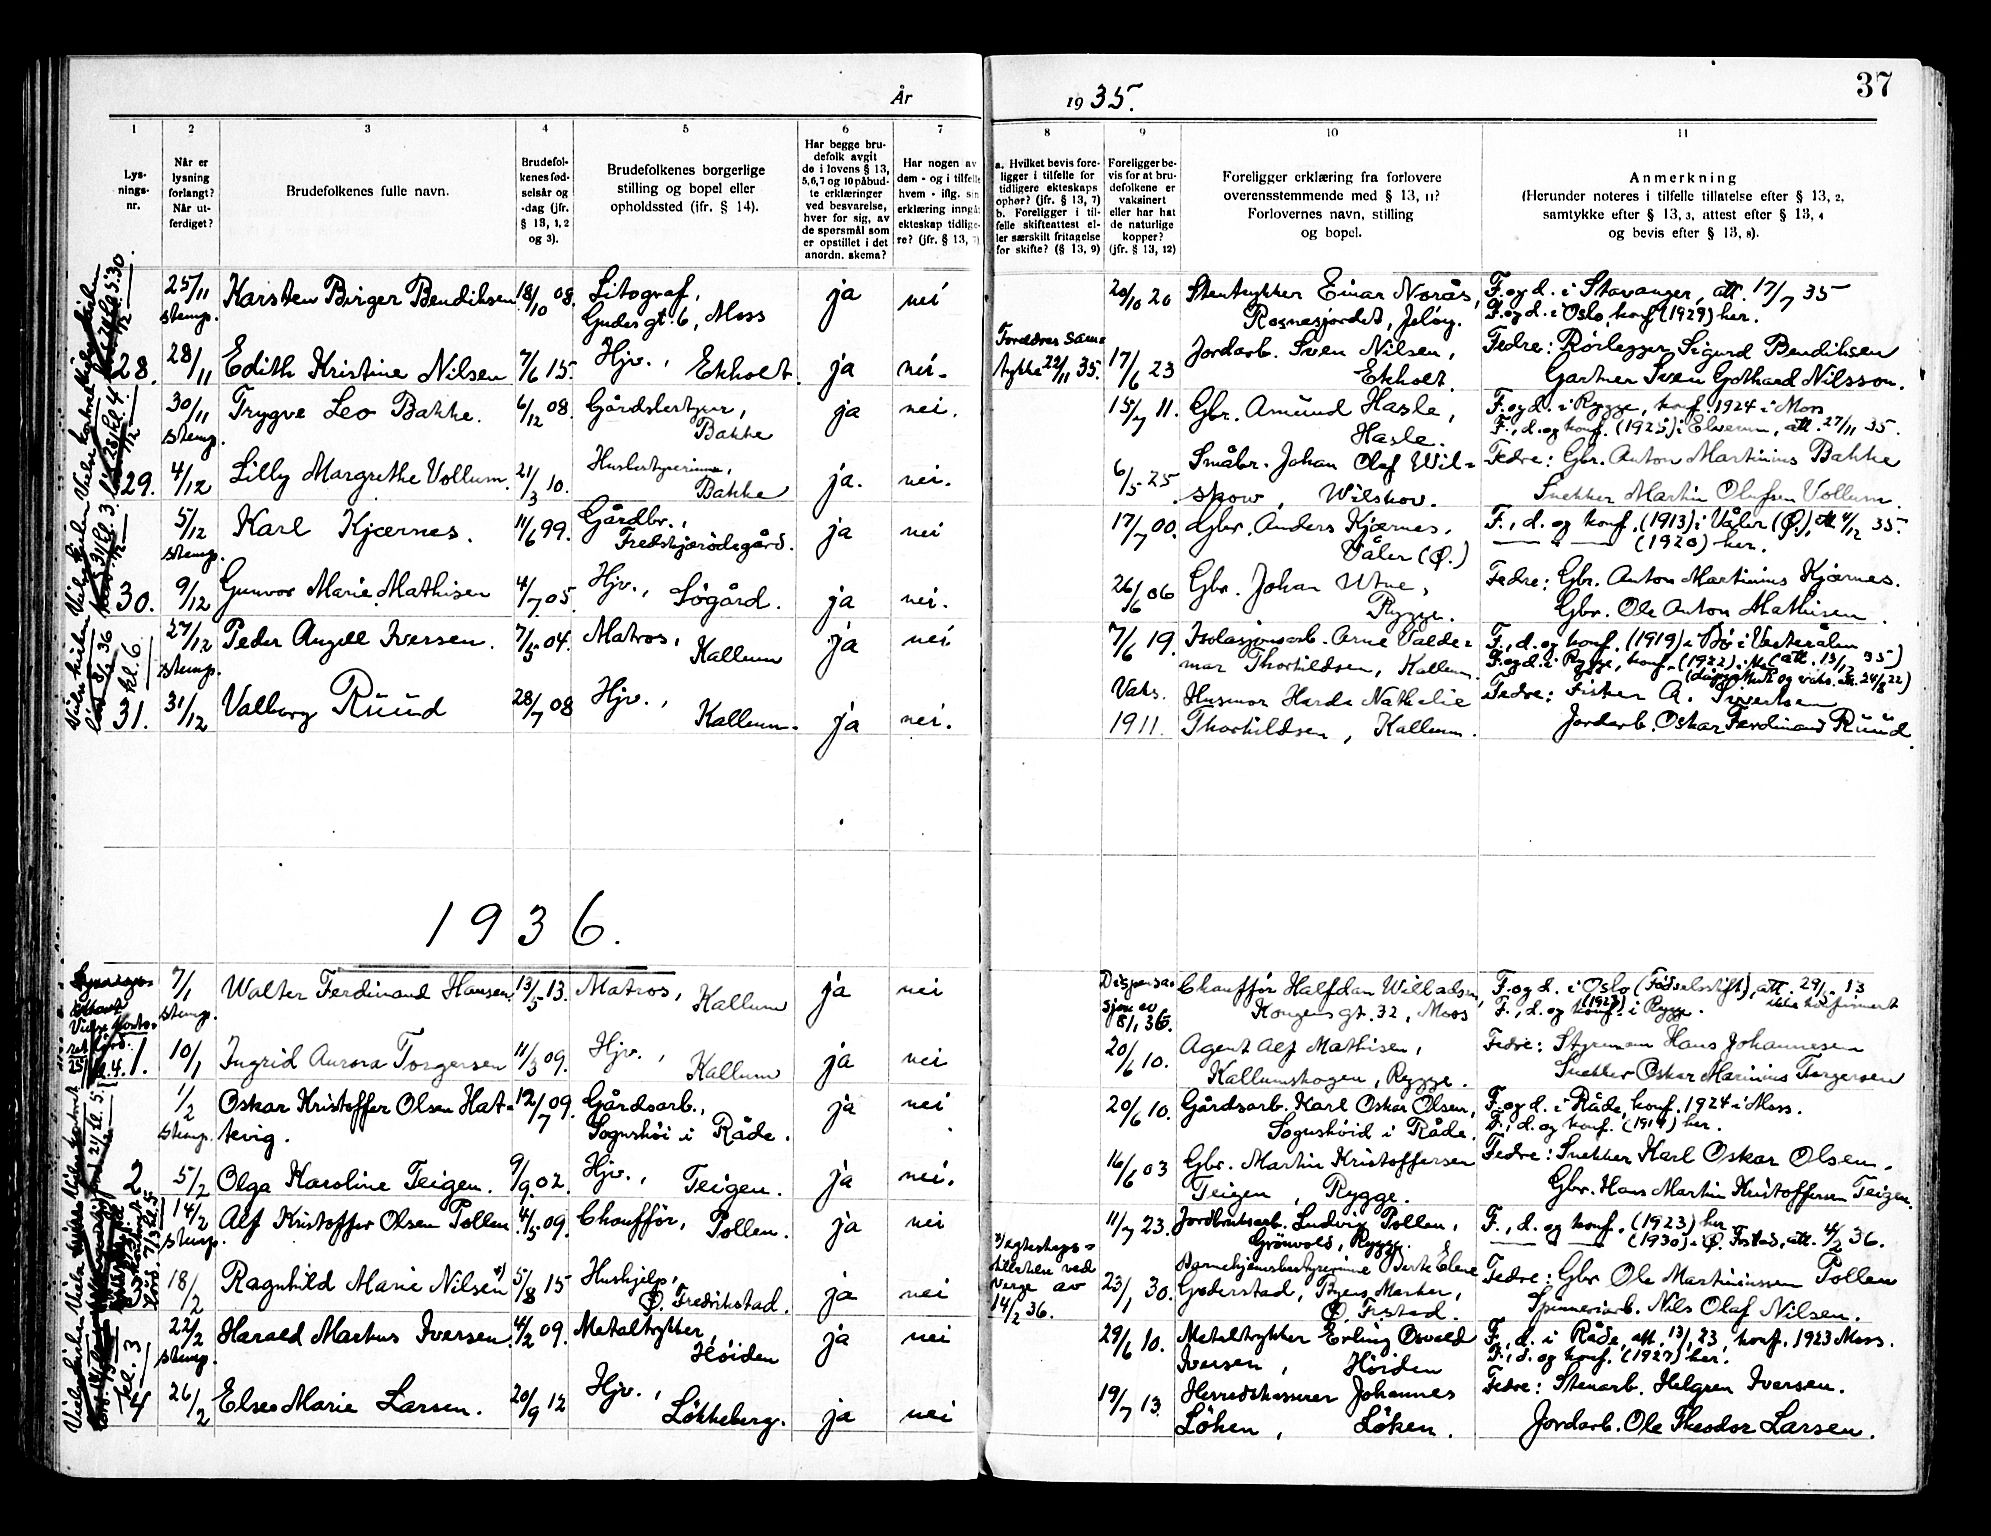 37
År 1935.
1 2 3 4 5 6 7 8 9 10 11
Lys-
nings-
nr.
Når er
lysning
forlangt?
Når ut-
ferdiget?
Brudefolkenes fulle navn.
Brudefol-
kenes fød-
selsår og
-dag (jfr.
§ 13, 1, 2
og 3).
Brudefolkenes borgerlige
stilling og bopel eller
opholdssted (ifr. § 14).
Har begge bru-
defolk avgit
de i lovens § 13,
5,6,7 og 10 påbud-
te erklæringer
ved besvarelse,
hver for sig, av
de spørsmål som
er opstillet i det
anordn. skema?
Har nogen av
dem - og i tilfelle
hvem - iflg. sin
erklæring inngåt
ekteskap tidlige-
re? (jfr. § 13, 7)
a. Hvilket bevis fore-
ligger i tilfelle for
tidligere ekteskaps
ophør? (jfr. § 13, 7)
b. Foreligger i til-
felle skifteattest el-
ler særskilt fritagelse
for skifte? (§ 13, 9)
Foreligger be-
vis for at bru-
defolkene er
vaksinert
eller har hat
de naturlige
kopper?
(jfr. § 13, 12)
Foreligger erklæring fra forlovere
overensstemmende med § 13, 11?
Forlovernes navn, stilling
og bopel.
Anmerkning
(Herunder noteres i tilfelle tillatelse efter § 13, 2,
samtykke efter § 13, 3, attest efter § 13, 4
og bevis efter § 13, 8).
25/11 Karsten Birger Bendiksen 18/10 08. Litograf, ja nei 20/10 20 Stentrykker Einar Norås, F. og d. i Stavanger, att. 17/7 35
stemp. Gudes gt. 6, Moss Rosnesjordet, Jeløy. F. og d. i Oslo, konf. (1929) her.
28. 28/11 Edith Kristine Nilsen 7/6 15. Hjv., Ekholt. ja nei. Foreldres sam- 17/6 23 Jordarb. Sven Nilsen, Fedre: Rørlegger Sigurd Bendiksen
tykke 22/11 35. Ekholt. Gartner Sven Gothard Nilsson.
30/11 Trygve Leo Bakke. 6/12 08. Gårdsbestyrer, ja nei. 15/7 11. Gbr. Amund Hasle, F. og d. i Rygge, konf. 1924 i Moss
stemp. Bakke Hasle. F., d. og konf. (1925) i Elverum, att. 27/11 35.
29. 4/12 Lilly Margrethe Vollum. 21/3 10. Husbestyrerinne, ja. nei. 6/5 25 Småbr. Johan Olaf Wil- Fedre: Gbr. Anton Martinius Bakke
Bakke skow, Wilskov. Snekker Martin Olufsen Vollum.
5/12 Karl Kjærnes. 11/6 99. Gårdbr., ja nei 17/7 00. Gbr. Anders Kjærnes, F., d. og konf. (1913) i Våler (Ø.), att. 4/12 35.
stemp. Fredskjærødegård. Våler (Ø.) — (1920) her.
30. 9/12 Gunvor Marie Mathisen 4/7 05. Hjv., Søgård. ja nei. 26/6 06 Gbr. Johan Utne, Fedre: Gbr. Anton Martinius Kjærnes.
Rygge. Gbr. Ole Anton Mathisen.
27/12 Peder Angell Iversen. 7/5 04. Matros, ja nei 7/6 19. Isolasjonsarb. Arne Valde- F., d. og konf. (1919) i Bø i Vesterålen
stemp. Kallum mar Thorkildsen, Kallum. F. og d. i Rygge, konf. (1922)
31. 31/12 Valborg Ruud 28/7 08 Hjv., Kallum. ja nei. Vaks. Husmor Harda Nathalie Fedre: Fisker A. Sivertsen
1911. Thorkildsen, Kallum. Jordarb. Oskar Ferdinand Ruud.
1936.
7/1 Walter Ferdinand Hansen. 13/5 13. Matros, ja nei Dispensa- Chauffør Halfdan Willadsen, F. og d. i Oslo (Fødselsstift), att. 29/1 13
stemp. Kallum sjon av Kongens gt. 32, Moss ikke konfirmert
8/1 36 F., d. og konf. (1923) i Rygge.
1. 10/1 Ingrid Aurora Torgersen 11/3 09. Hjv., Kallum ja nei 20/6 10. Agent Alf Mathisen, Fedre: Styrmann Hans Johannesen
Kallumskogen, Rygge. Snekker Oskar Marinius Torgersen
1/2 Oskar Kristoffer Olsen Hat- 12/7 09. Gårdsarb., ja nei 20/6 10. Gårdsarb. Karl Oskar Olsen, F. og d. i Råde, konf. 1924 i Moss.
stemp. tevig. Sognshøi i Råde. Sognshøid i Råde. F., d. og konf. (1917) her.
2 5/2 Olga Karoline Teigen. 9/9 02. Hjv., Teigen. ja nei. 16/6 03 Gbr. Martin Kristoffersen Fedre: Snekker Karl Oskar Olsen.
Teigen, Rygge. Gbr. Hans Martin Kristoffersen Teigen.
14/2 Alf Kristoffer Olsen Pollen 4/5 09. Chauffør, Pollen. ja nei 11/7 23. Jordbruksarb. Ludvig Pollen, F., d. og konf. (1923) her
stemp. Grønvold, Rygge. — (1930) i Ø. Fstad, att. 4/2 36.
3 18/2 Ragnhild Marie Nilsen 5/8 15 Hushjelp, ja nei 23/1 30. Barnehjemsbestyrerinne Berte Elene Fedre: Gbr Ole Martiniussen Pollen
Ø. Fredrikstad. verge av Gaderstad, Byens Marker, Spinneriarb. Nils Olaf Nilsen.
14/2 36. Ø. Frstad.
22/2 Harald Markus Iversen. 4/2 09. Metaltrykker, ja nei 29/6 10. Metaltrykker Erling Osvald F., d. i Råde, att. 13/1 23, konf. 1923 Moss.
stemp. Høiden Iversen, Høiden F., d. og konf. (1927) her.
4 26/2 Else Marie Larsen. 20/9 12 Hjv., Løkkeberg. ja nei 19/7 13. Herredskasserer Johannes Fedre: Stenarb. Helgren Iversen.
Løken, Løken. Jordarb. Ole Theodor Larsen.